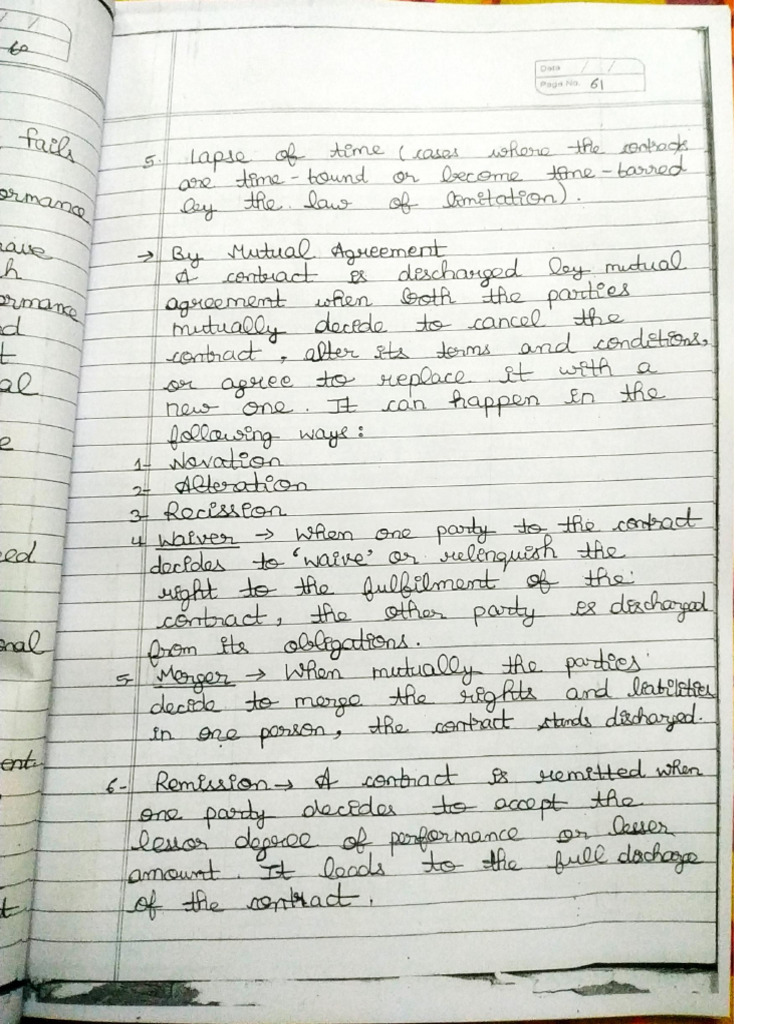 60
fails
ormance
have
h
ormance
d
t
al
e
ed
onal
ent
t
Date / /
Page No. 61
5. Lapse of time (cases where the contracts
are time-bound or become time-barred
by the law of limitation).
→ By Mutual Agreement
A contract is discharged by mutual
agreement when both the parties
mutually decide to cancel the
contract, alter its terms and conditions,
or agree to replace it with a
new one. It can happen in the
following ways:
1- Novation
2- Alteration
3- Recission
4 Waiver → When one party to the contract
decides to 'waive' or relinquish the
right to the fulfilment of the
contract, the other party is discharged
from its obligations.
5- Merger → When mutually the parties
decide to merge the rights and liabilities
in one person, the contract stands discharged.
6- Remission → A contract is remitted when
one party decides to accept the
lessor degree of performance or lesser
amount. It leads to the full discharge
of the contract.